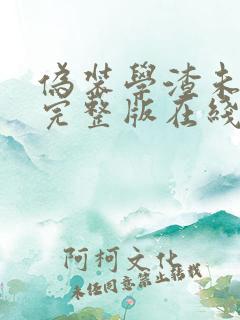 偽裝學渣未
完整版在綫
阿柯文化
未经同意禁止转载